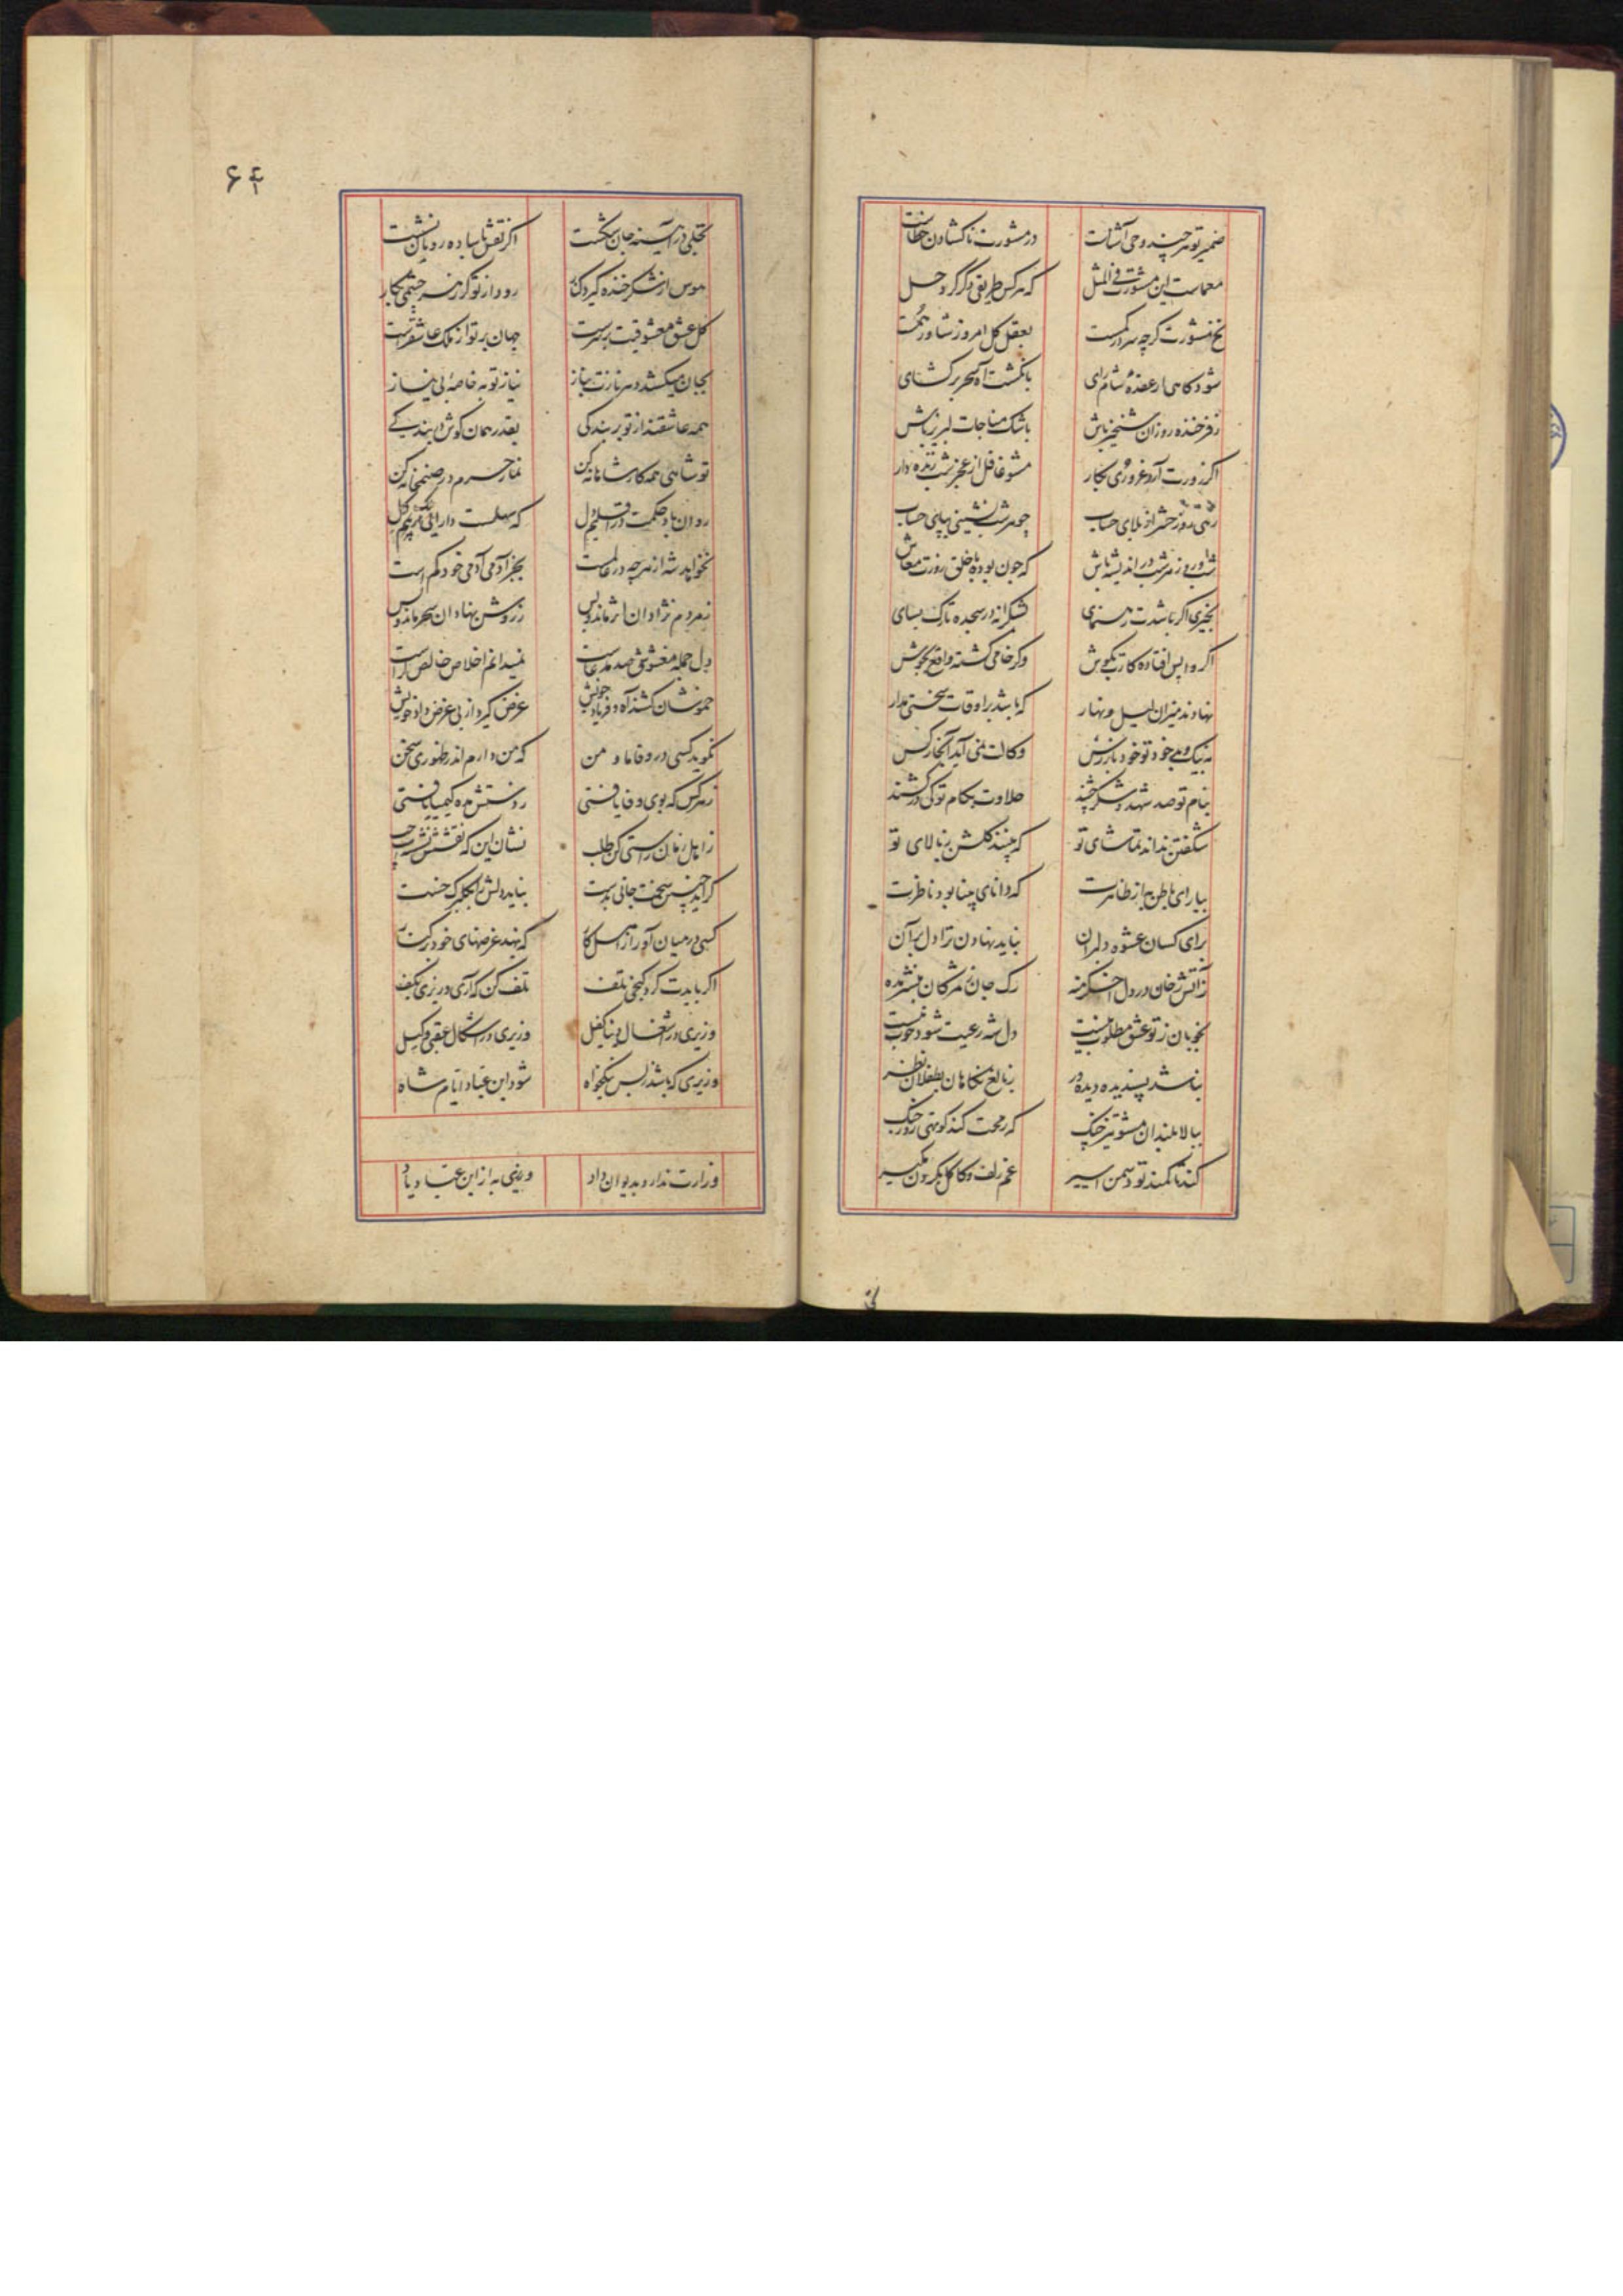 ضمیر تو هر چند وحی آشناست در مشورت ناکشادن خطاست
معماست این مشورت فی المثل که هر کس طریقی دگر کرد حل
مشورت کرچه سر بعقل کل امروز شاورهمت
شود کاهی از عقده شام رای بانگشت آه سحر بر کشای
ز فرخنده روزان شبخیز باش باشک مناجات لبریز باش
اکر زورت آرد غروری بکار مشو غافل از عجز شب زنده دار
رهی روز حشر از بلای حساب چو هر شب نشینی بپای حساب
شب و روز هر شب در اندیشه باش که چون بوده با خلق روزت معاش
بخیری اکر باشدت رهنمای شکرانه در سجده تارک بسای
اکر واپس افتاده کارت بکوش وکر خامی کشته واقع بجوش
نهادند میزان لیل و نهار که باشد بر اوقات سختی مدار
به نیک و بد خود تو خود باز رس وکالت نمی آید آنجا ز کس
بنام تو صد شهد و شکر چشند حلاوت بکام تو کی در کشند
شکفتن نداند تماشای تو که بینند کلشن ز بالای تو
بیارای باطن به از ظاهرت که دانای بینا بود ناظرت
برای کسان عشوه دلبران نباید نهادن ترا دل بر آن
ز آتش رخان در دل اخکر منه رک جان بمژکان نشتر مده
بخوبان ز تو عشق مطلوب نیست دل شه رعیت شود خوب نیست
نباشد پسندیده دیده ور ز بالغ نکاهان بطفلان نظر
ببالا بلندان مشو تیز چنک که رمحت کند کوتهی روز جنک
کند تا کمند تو دشمن اسیر غم زلف و کاکل بکردن مکیر
۶۴
تجلی در آیینه جان شکست اکر نقش با ساده رویان نشست
هوس از شکر خنده کیرد کنار رود از تو کر نرم چشمی بکار
کل عشق معشوقیت بر سرست جهان بر تو از ملک عاشقترست
بجان میکشد دهر نازت بناز نیاز تو به خاصه بی نیاز
همه عاشقند از تو بر بندکی بقدر همان کوش دل بندکی
تو شاهی همه کار شاهانه کن نماز حرم در صنمخانه کن
روان باد حکمت در اقلیم دل که سهلست دارایی آب و کل
نخواهد شه از هر چه در عالمست بجز آدمی آدمی خود کم است
ز مردم نژادان اثر ماند و بس ز روشن نهادان سحر ماند و بس
دل جمله معشوق صد مدعاست نمیدانم اخلاص خالص کراست
خموشان کشند آه و فریاد خویش غرض کیرد از بی غرض داد خویش
نکوید کسی در وفا ما و من که من دارم اندر ظهوری سخن
ز هر کس که بوی وفا یافتی ز دستش مده کیمیا یافتی
ز اهل زمان راستی کن طلب نشان این که نقشش نشد چپ
کر اینچنین سخت جانی بدست نباید دلش را بکلبرک خست
کسی در میان آور از اهل کار که بنهد غرضهای خود بر کنار
اکر بایدت کرد کنجی تلف تلف کن که آری وزیری بکف
وزیری در اشغال دنیا کفیل وزیری در اشکال عقبی وکیل
وزیری که باشد ز بس نیکخواه شود ابن عباد ایام شاه
وزارت ندارد بدیوان داد وزیری به از ابن عباد یاد